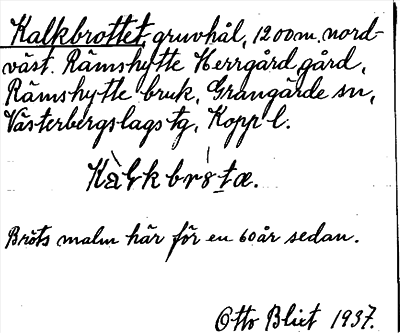 Kalkbrottet, gruvhål, 1200m. nord-
väst. Rämshytte Herrgård, gård,
Rämshytte bruk, Grangärde sn,
Västerbergslags tg, Kopp l.
Kàlkbrŏ́tæ.
Bröts malm här för en 60 år sedan.
Otto Blixt 1937.